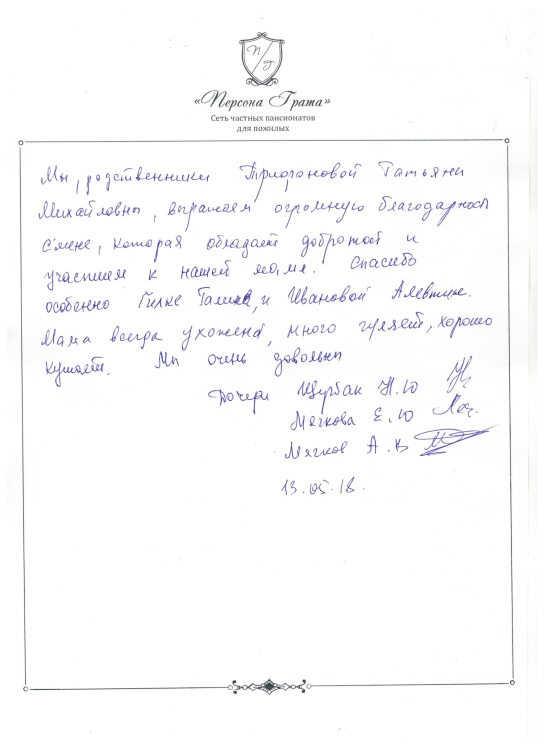 П/Г
«Персона Грата»
Сеть частных пансионатов
для пожилых
Мы, родственники Трифоновой Татьяны
Михайловны, выражаем огромную благодарность
смене, которая обладает добротой и
участием к нашей маме. Спасибо
особенно Гилке Галине, и Ивановой Алевтине.
Мама всегда ухожена, много гуляет, хорошо
кушает. Мы очень довольны
Дочери Щурбак Н.Ю
Мягкова Е.Ю
Мягков А.В
13.05.18.